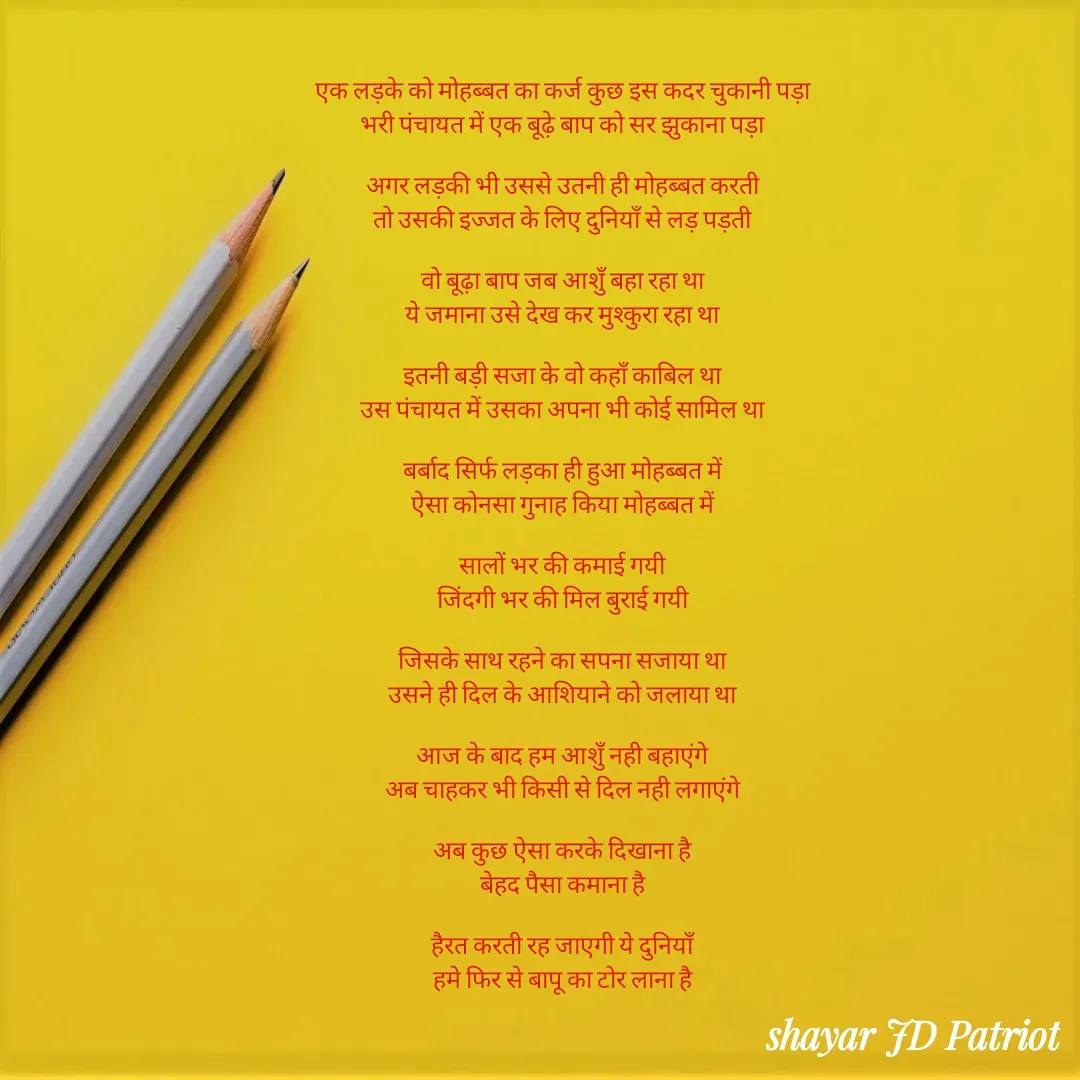 एक लड़के को मोहब्बत का कर्ज कुछ इस कदर चुकानी पड़ा
भरी पंचायत में एक बूढ़े बाप को सर झुकाना पड़ा
अगर लड़की भी उससे उतनी ही मोहब्बत करती
तो उसकी इज्जत के लिए दुनियाँ से लड़ पड़ती
वो बूढ़ा बाप जब आशुँ बहा रहा था
ये जमाना उसे देख कर मुश्कुरा रहा था
इतनी बड़ी सजा के वो कहाँ काबिल था
उस पंचायत में उसका अपना भी कोई सामिल था
बर्बाद सिर्फ लड़का ही हुआ मोहब्बत में
ऐसा कोनसा गुनाह किया मोहब्बत में
सालों भर की कमाई गयी
जिंदगी भर की मिल बुराई गयी
जिसके साथ रहने का सपना सजाया था
उसने ही दिल के आशियाने को जलाया था
आज के बाद हम आशुँ नही बहाएंगे
अब चाहकर भी किसी से दिल नही लगाएंगे
अब कुछ ऐसा करके दिखाना है
बेहद पैसा कमाना है
हैरत करती रह जाएगी ये दुनियाँ
हमे फिर से बापू का टोर लाना है
shayar JD Patriot